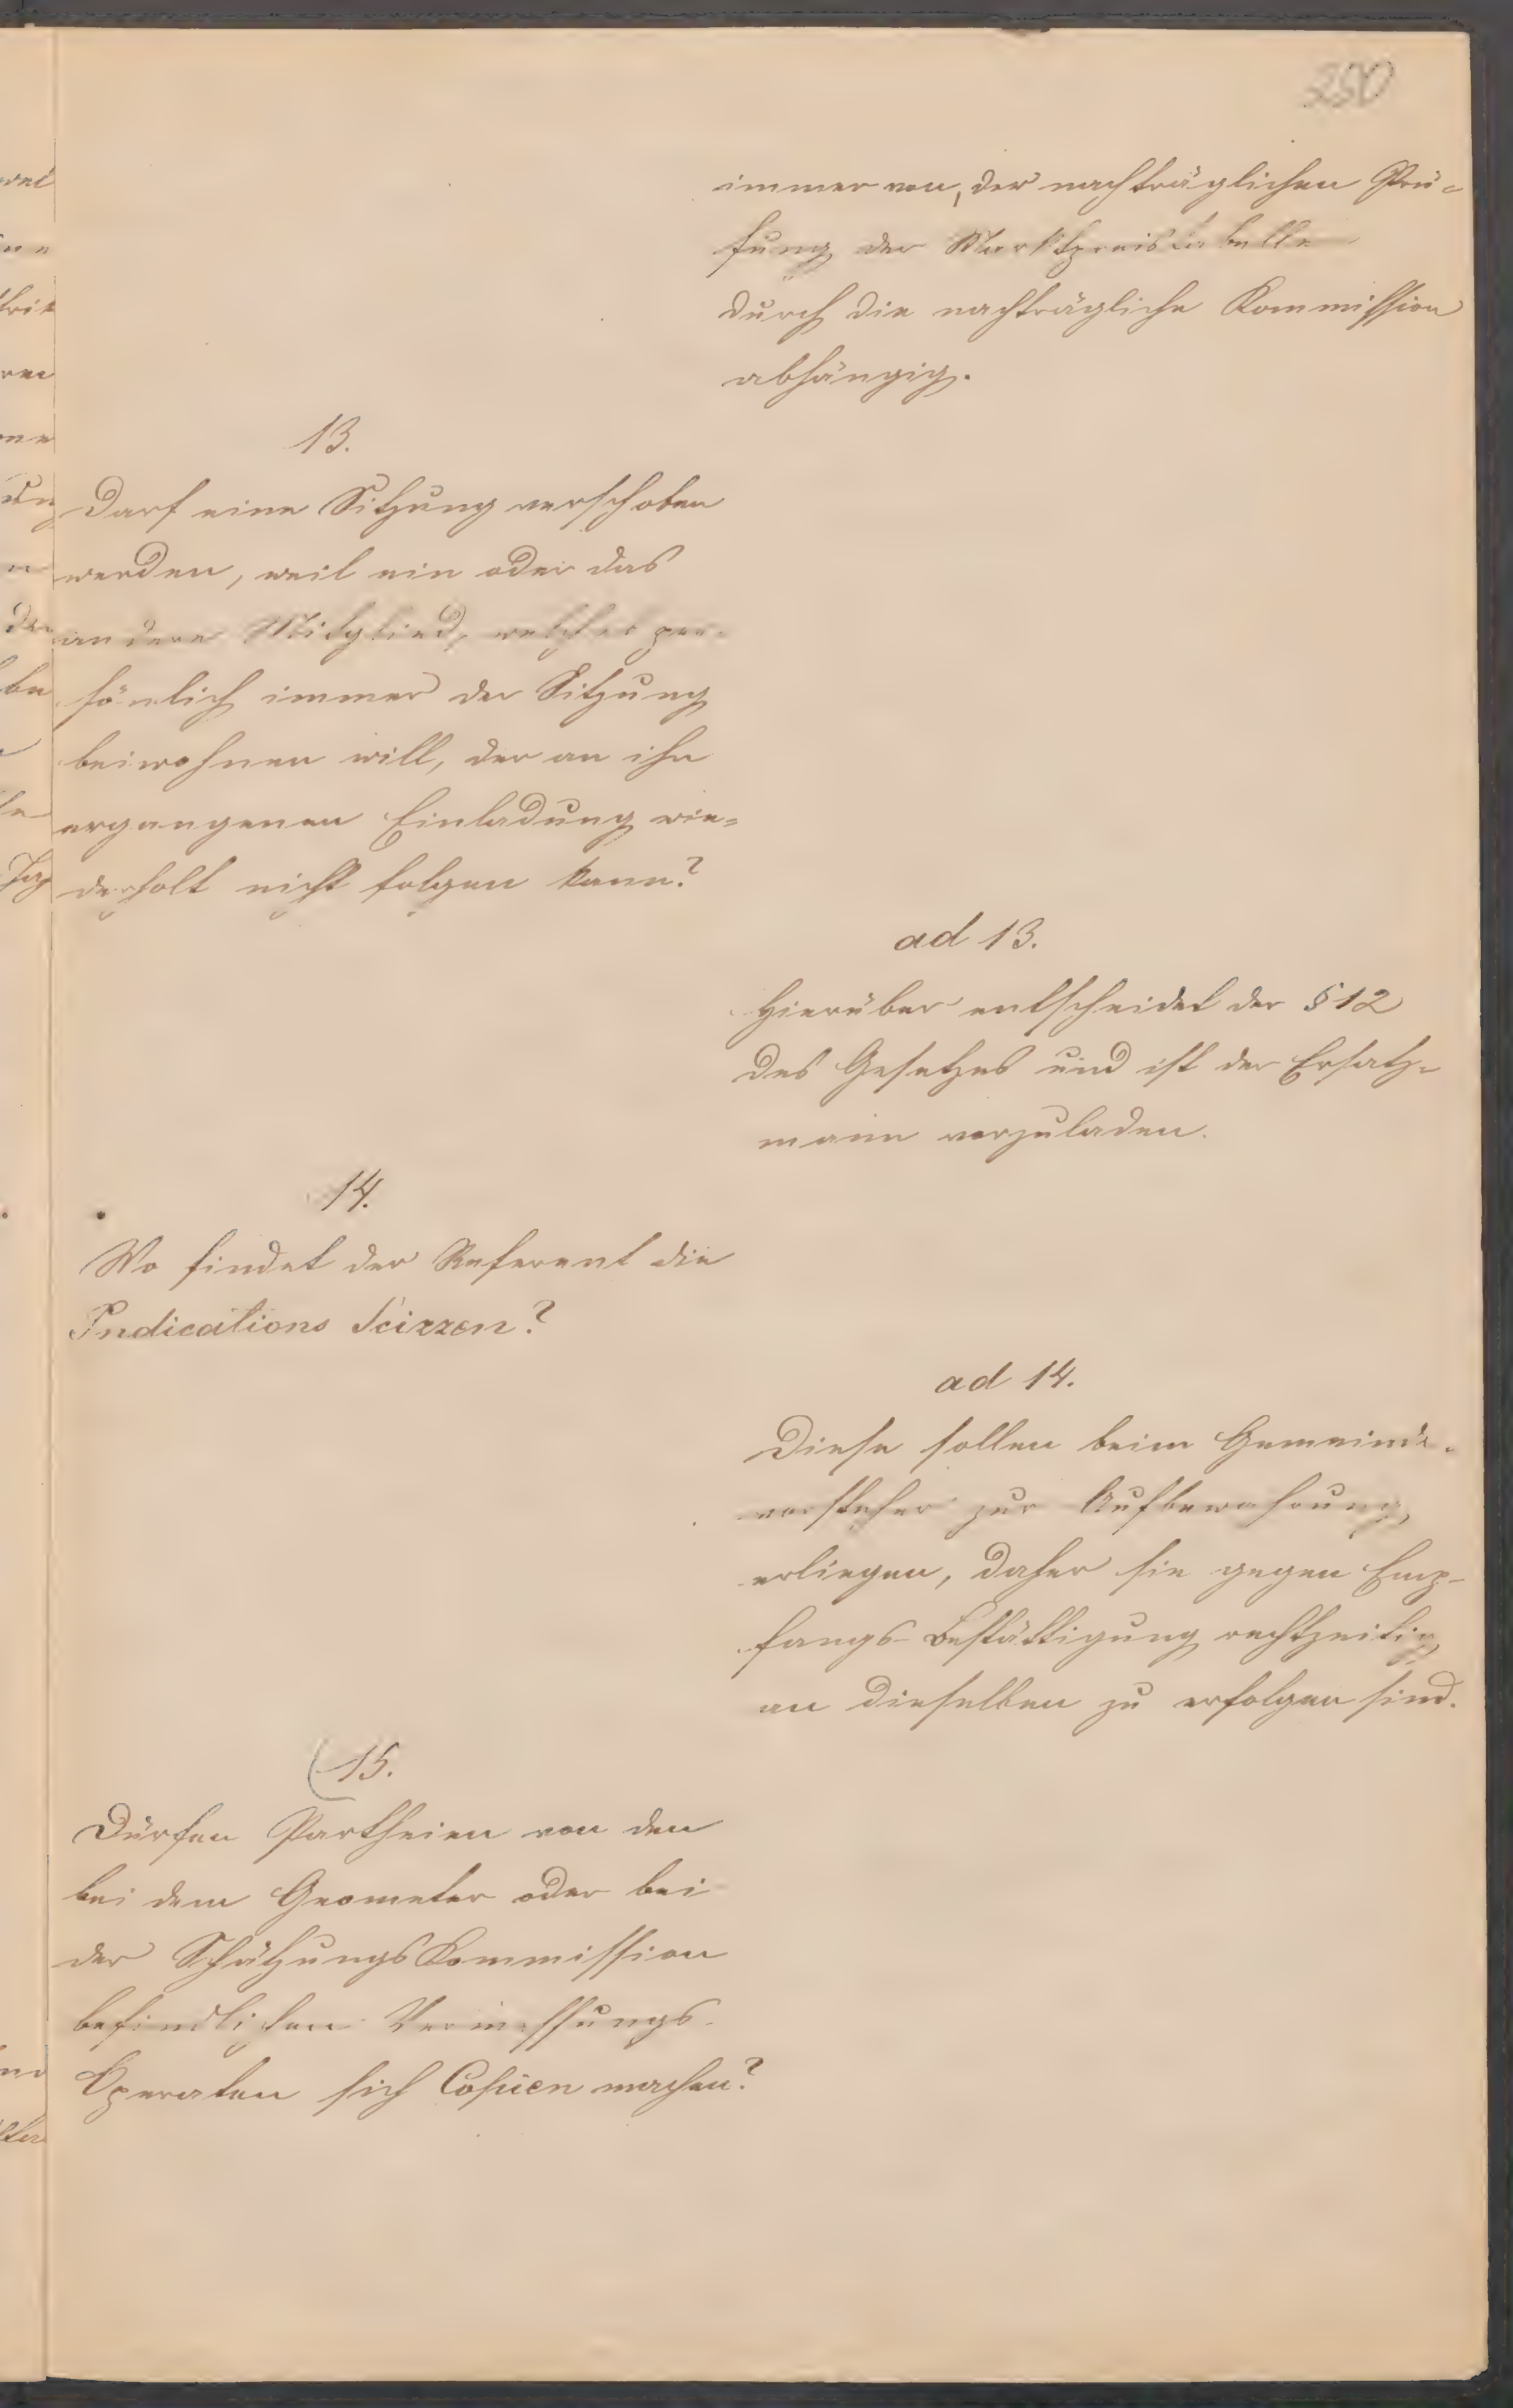 250
immer von der nachträglichen Prü-
fung der Marktpreistabelle
durch die nachträgliche Kommission
abhängig.
13.
Darf eine Sitzung verschoben
werden, weil ein oder das
andere Mitglied, welches per-
sönlich immer der Sitzung
beiwohnen will, der an ihn
ergangenen Einladung wie-
derholt nicht folgen kann?
ad 13.
Hierüber entscheidet der § 12
des Gesetzes und ist der Ersatz-
mann vorzuladen.
14.
Wo findet der Referent die
Indications Scizzen?
ad 14.
Diese sollen beim Gemeinde-
vorsteher zur Aufbewahrung
erliegen, daher sie gegen Emp-
fangs-Bestättigung rechtzeitig
an dieselben zu erfolgen sind.
15.
Dürfen Partheien von den
bei dem Geometer oder bei
der Schätzungs Kommission
befindlichen Vermessungs-
Operaten sich Copien machen?